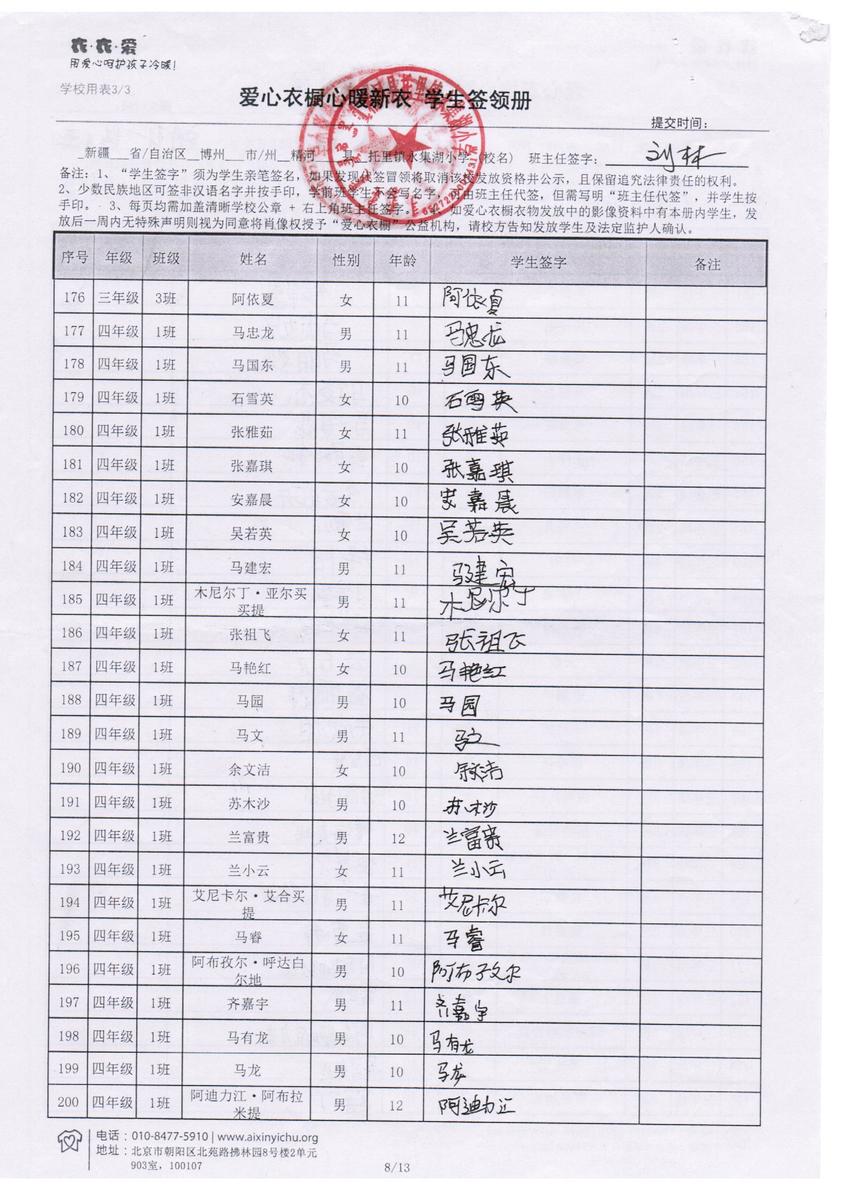 衣·衣·爱
用爱心呵护孩子冷暖!
学校用表3/3
爱心衣橱心暖新衣 学生签领册
提交时间:
_新疆___省/自治区__博州___市/州__精河____县__托里镇永集湖小学_(校名) 班主任签字: 刘林
备注:1、“学生签字”须为学生亲笔签名,如果发现代签冒领将取消该校发放资格并公示,且保留追究法律责任的权利。
2、少数民族地区可签非汉语名字并按手印,学前班学生不会写名字,可由班主任代签,但需写明“班主任代签”,并学生按
手印。 3、每页均需加盖清晰学校公章 + 右上角班主任签字。 如爱心衣橱衣物发放中的影像资料中有本册内学生,发
放后一周内无特殊声明则视为同意将肖像权授予“爱心衣橱”公益机构,请校方告知发放学生及法定监护人确认。
序号 年级 班级 姓名 性别 年龄 学生签字 备注
176 三年级 3班 阿依夏 女 11 阿依夏
177 四年级 1班 马忠龙 男 11 马忠龙
178 四年级 1班 马国东 男 11 马国东
179 四年级 1班 石雪英 女 10 石雪英
180 四年级 1班 张雅茹 女 11 张雅茹
181 四年级 1班 张嘉琪 女 10 张嘉琪
182 四年级 1班 安嘉晨 女 10 安嘉晨
183 四年级 1班 吴若英 女 10 吴若英
184 四年级 1班 马建宏 男 11 马建宏
185 四年级 1班 木尼尔丁·亚尔买买提 男 11 木尼尔丁
186 四年级 1班 张祖飞 女 11 张祖飞
187 四年级 1班 马艳红 女 10 马艳红
188 四年级 1班 马园 男 10 马园
189 四年级 1班 马文 男 11 马文
190 四年级 1班 余文洁 女 10 余文洁
191 四年级 1班 苏木沙 男 10 苏木沙
192 四年级 1班 兰富贵 男 12 兰富贵
193 四年级 1班 兰小云 女 11 兰小云
194 四年级 1班 艾尼卡尔·艾合买提 男 11 艾尼卡尔
195 四年级 1班 马睿 女 11 马睿
196 四年级 1班 阿布孜尔·呼达白尔地 男 10 阿布孜尔
197 四年级 1班 齐嘉宇 男 11 齐嘉宇
198 四年级 1班 马有龙 男 10 马有龙
199 四年级 1班 马龙 男 10 马龙
200 四年级 1班 阿迪力江·阿布拉米提 男 12 阿迪力江
电话:010-8477-5910 | www.aixinyichu.org
地址:北京市朝阳区北苑路拂林园8号楼2单元
903室,100107
8/13